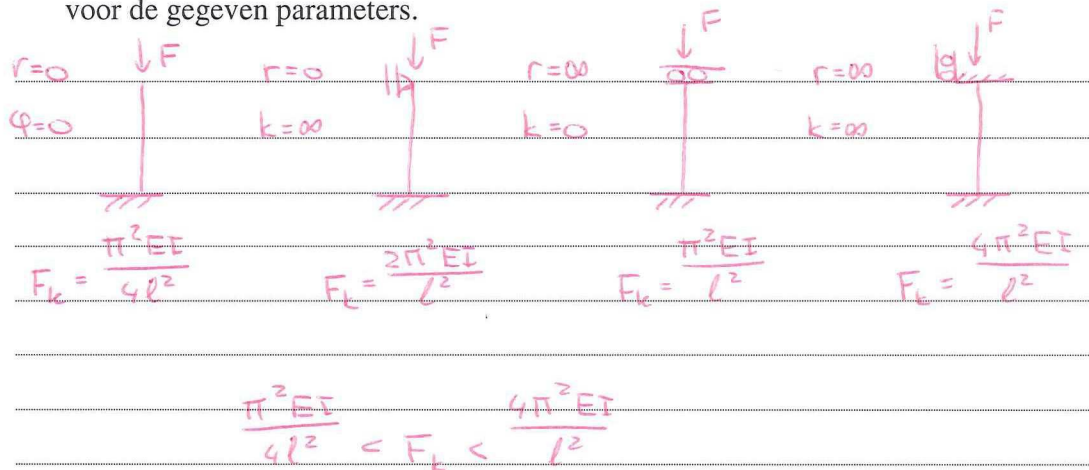 voor de gegeven parameters.
r=0 ↓F r=0 ↓F r=∞ ↓F r=∞ ↓F
φ=0 k=∞ k=0 k=∞
F_k = π²EI/4l² F_k = 2π²EI/l² F_k = π²EI/l² F_k = 4π²EI/l²
π²EI/4l² < F_k < 4π²EI/l²